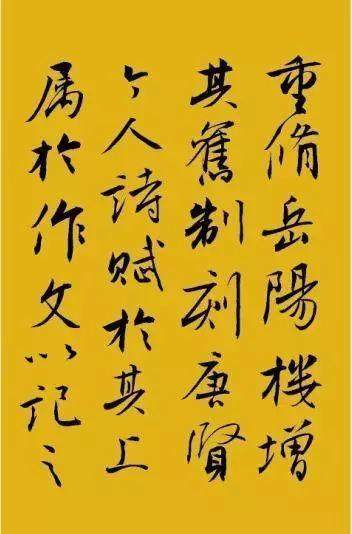 重脩岳陽楼增
其舊制刻唐賢
今人詩賦於其上
属於作文以記之